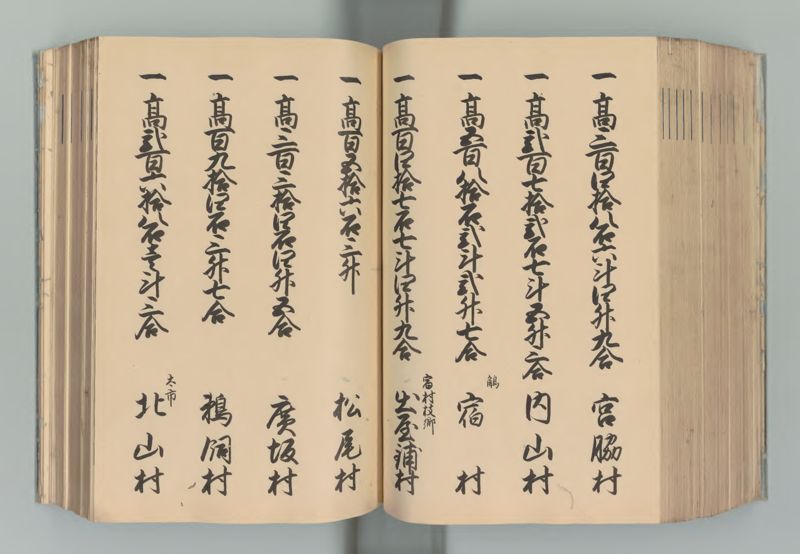 一 高三百四拾八石六斗四升九合 宮脇村
一 高弐百七拾弐石七斗五升三合 内山村
一 高五百八拾石弐斗弐升七合 宿村
一 高百四拾七石七斗四升九合 宿村枝郷 出屋鋪村
一 高百五拾六石三升 松尾村
一 高三百三拾四石四升五合 廣坂村
一 高百九拾四石三升七合 鵜飼村
一 高弐百六拾八石壱斗三合 太市 北山村